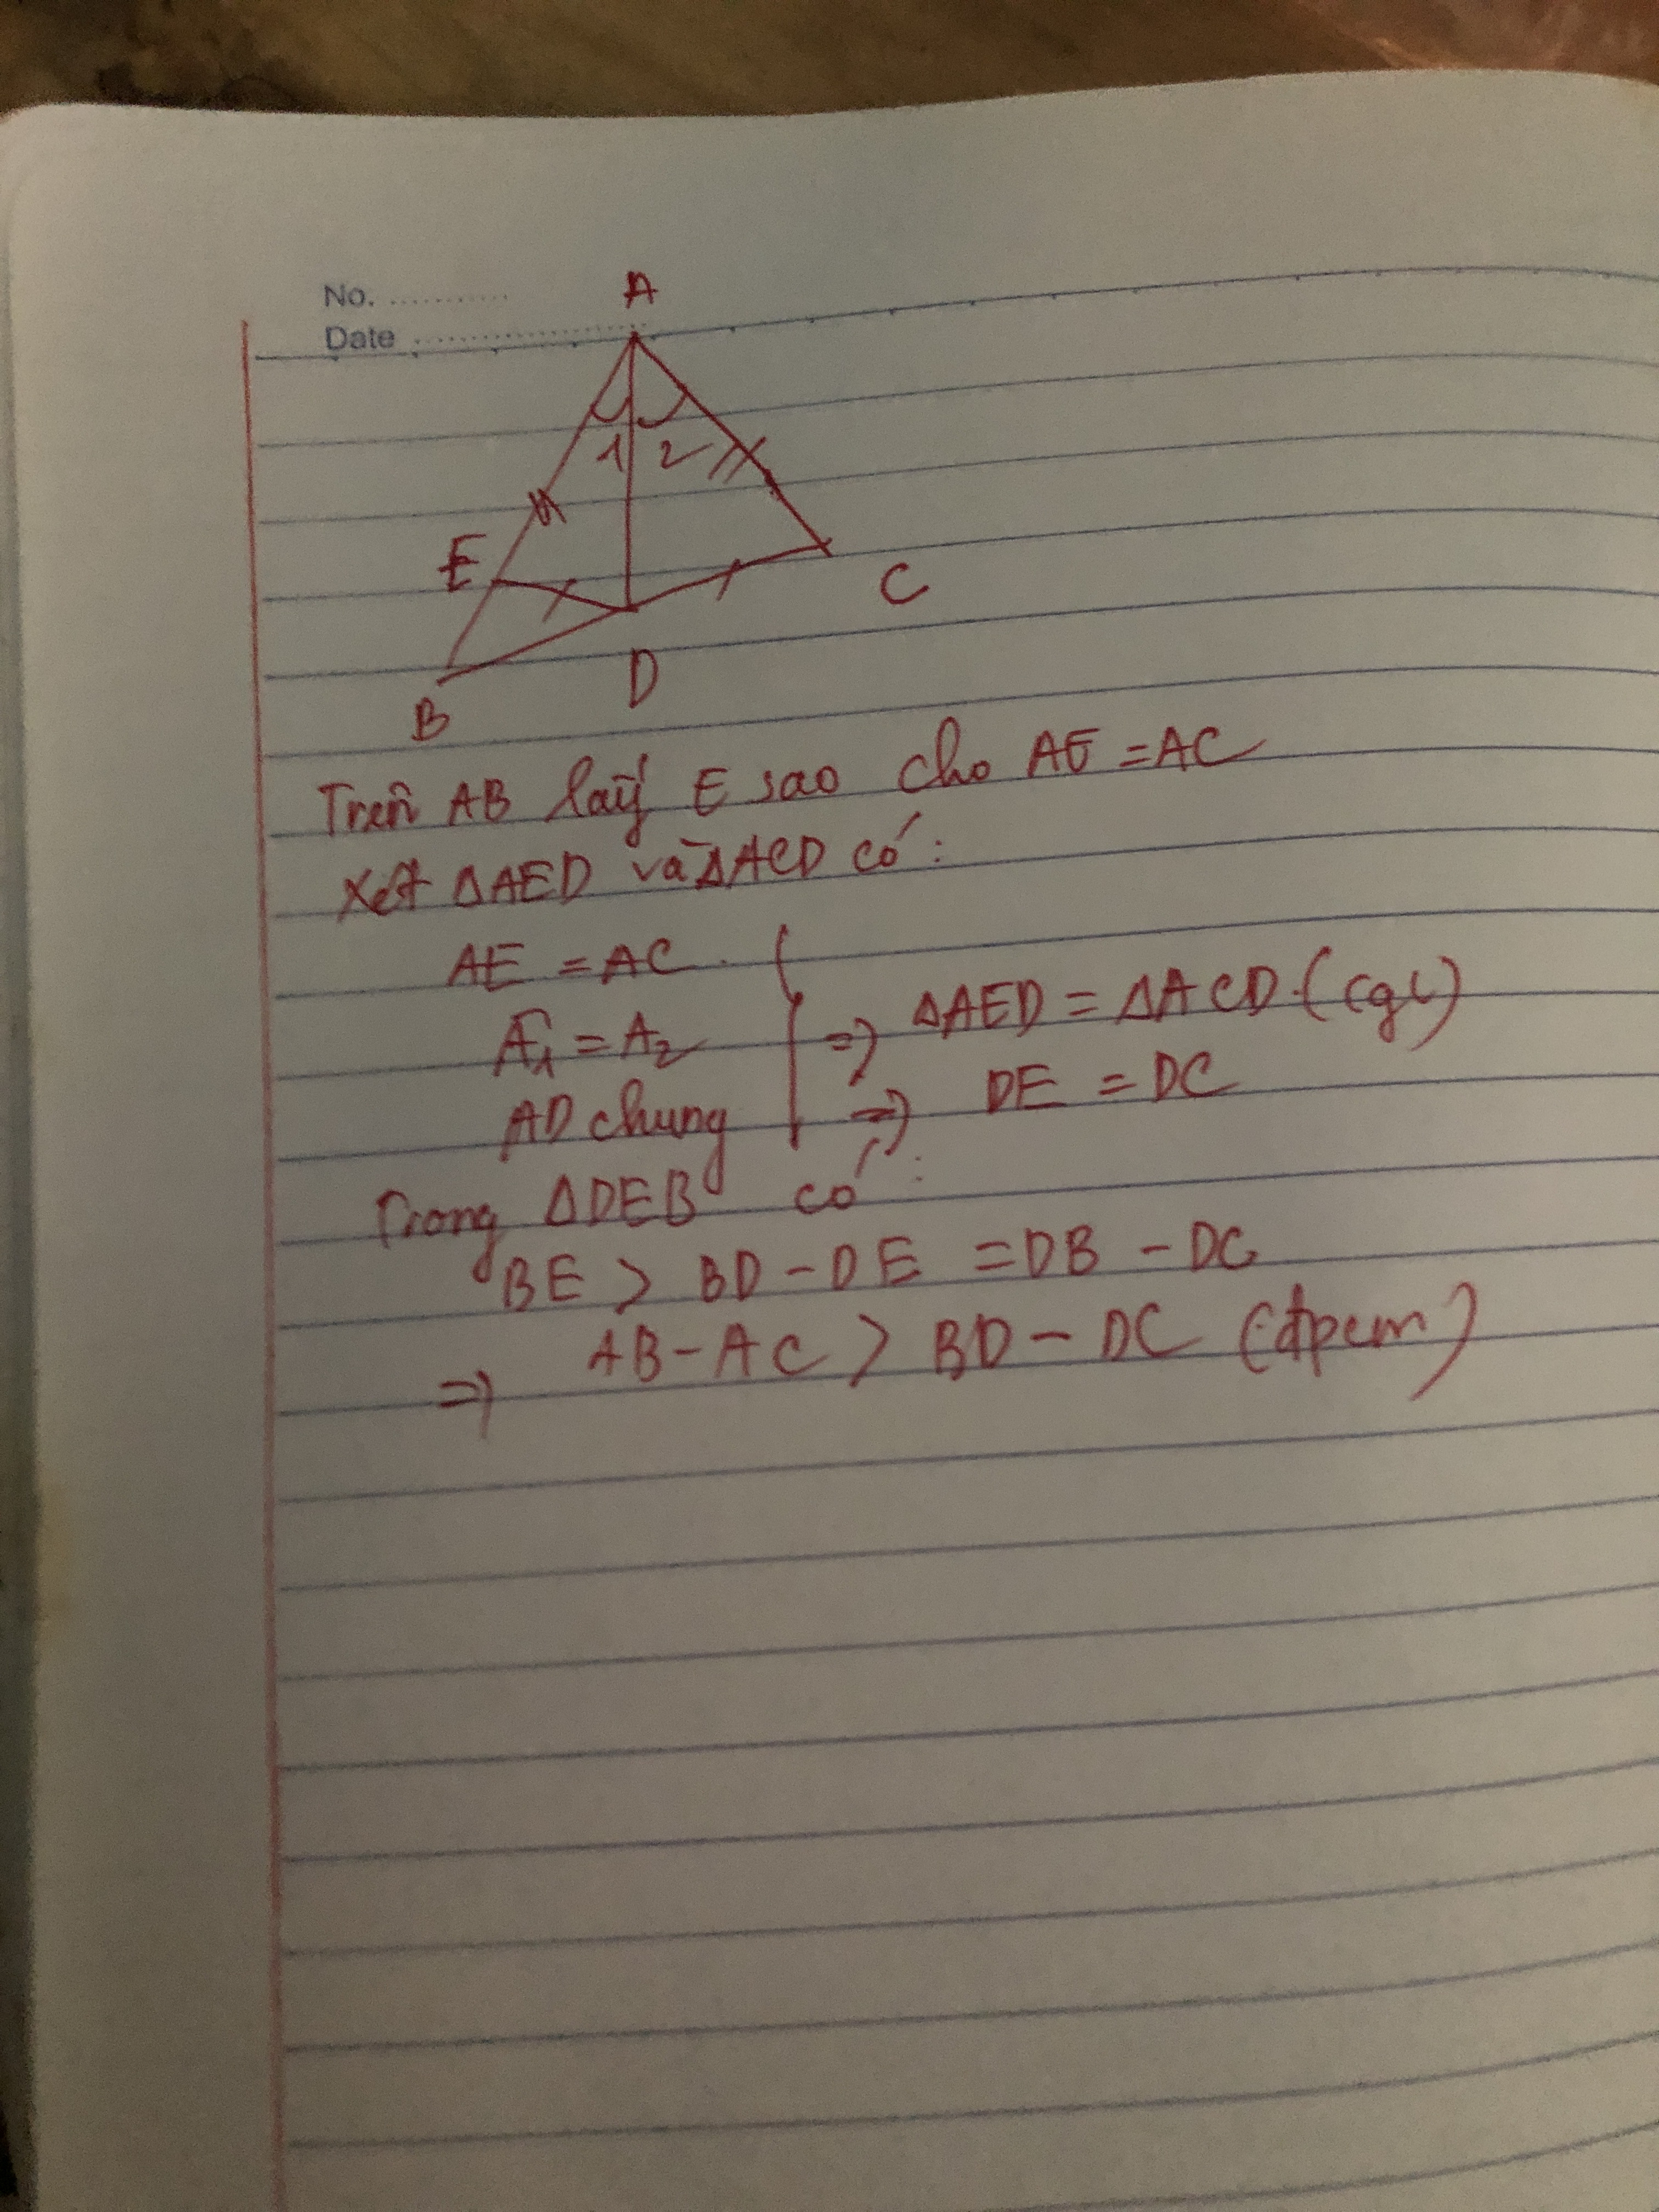 No. ...........
Date ..................
A
1 2
E
C
D
B
Trên AB lấy E sao cho AE = AC
Xét ΔAED và ΔACD có:
AE = AC
Â1 = A2 => ΔAED = ΔACD (cgc)
AD chung => DE = DC
Trong ΔDEB có:
BE > BD - DE = DB - DC
=> AB - AC > BD - DC (đpcm)